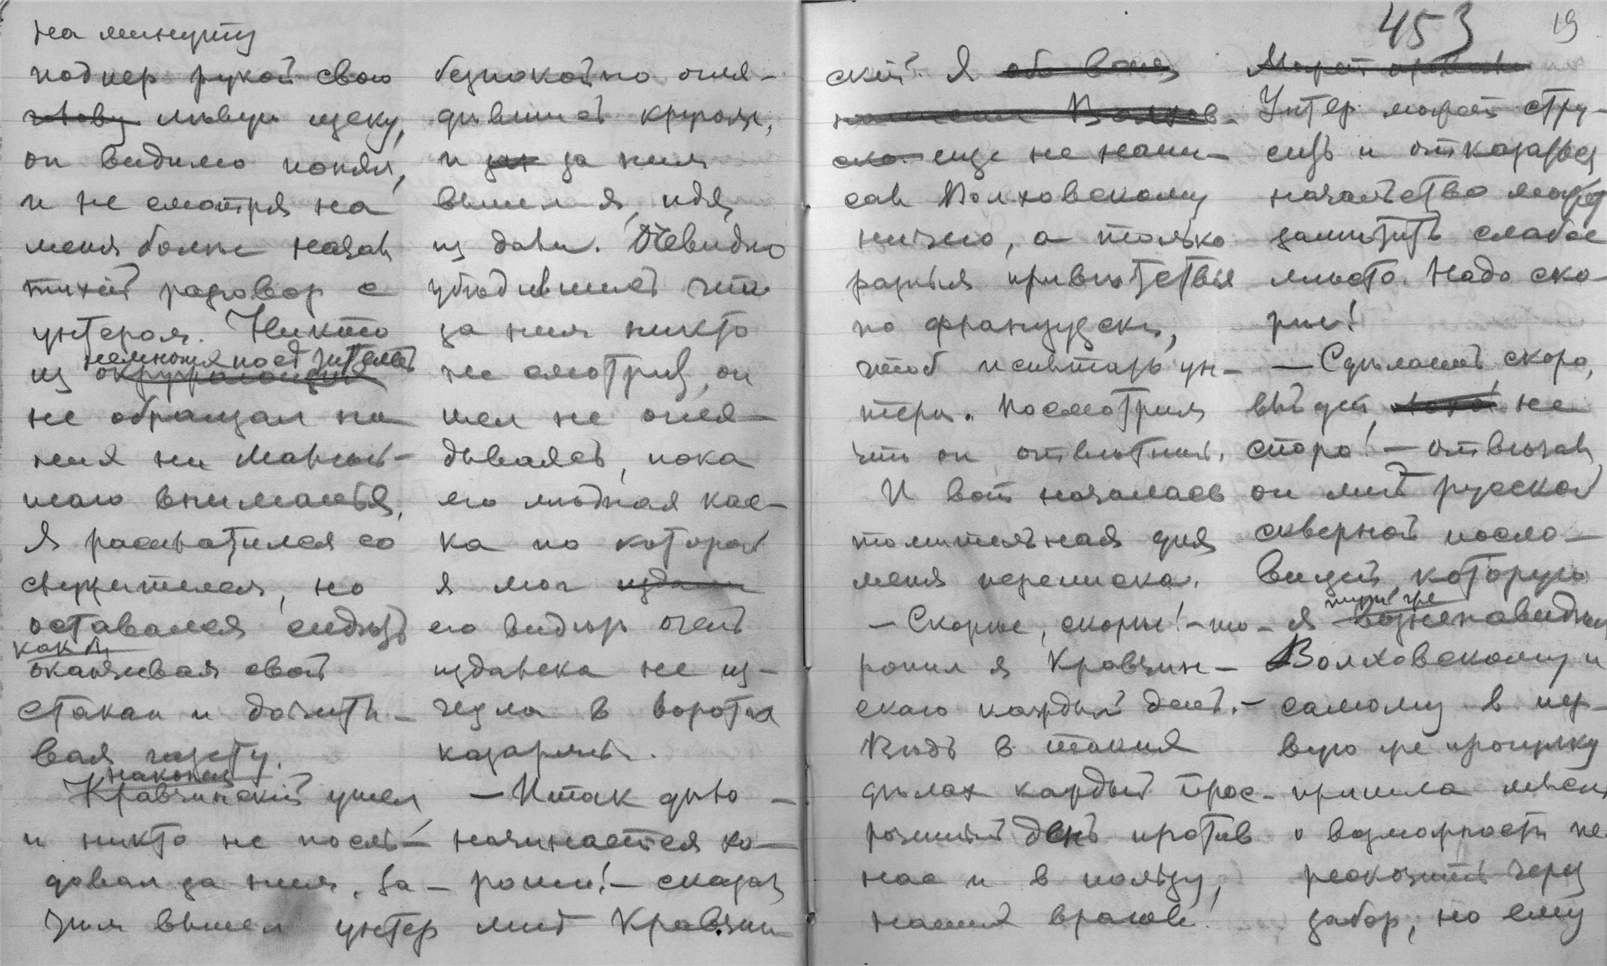 на минуту
подпер рукой свою
голову левую щеку,
он видимо понял,
и не смотря на
меня более начал
тихий разговор с
унтером. Никто
немногих посетителей
из окружающих
не обращал на
меня ни малѣй-
шаго вниманія.
Я расплатился со
служителем, но
оставался сидѣть
как бы
оканчивая свой
стакан и дочиты-
вая газету.
наконец
Кравчинскій ушел
и никто не послѣ-
довал за ним. За-
тѣм вышел унтер
безпокойно огля-
дѣвшись кругом,
и за ним
вышел я, идя
из дали. Очевидно
убѣдившись что
за ним никто
не смотрит, он
шел не огля-
дываясь, пока
его мѣдная кас-
ка по которой
я мог издали
его видѣть очень
издалека не из-
чезла в воротах
казармы.
— Итак дѣло
начинается хо-
рошо! — сказал
мнѣ Кравчин-
скій. Я
Волхов-
ско еще не напи-
сал Волховскому
ничего, а только
разныя привѣтствія
по французски,
чтоб испытать ун-
тера. Посмотрим
что он отвѣтит.
И вот началась
томительная для
меня переписка.
— Скорѣе, скорѣе! — то-
ропил я Кравчин-
скаго каждый день. —
Вѣдь в таких
дѣлах каждый прос-
роченный день против
нас и в пользу
наших врагов!
453
19
Может
Унтер может стру-
сить и отказаться
начальство может
замѣтить слабое
мѣсто. Надо ско-
рѣе!
— Сдѣлаешь скоро,
выйдет не
споро! — отвѣчал
он мнѣ русской
скверной посло-
вицей, которую
тут же
я возненавидѣл
Волховскому и
самому в пер-
вую же прогулку
пришла мысль
о возможности пе-
рескочить через
забор, но ему